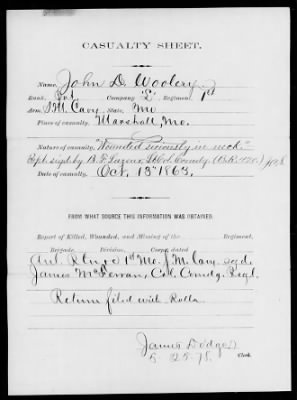 CASUALTY SHEET.
Name, John D. Woolery
Rank, Company "L" Regiment 1st
Arm, S.M. Cavy State, Mo
Place of casualty, Marshall, Mo.
Nature of casualty, "Wounded seriously in neck."
Rept. sigd by B. F. Lazear, Lt Col. Comdg
Date of casualty, Oct. 13" 1863.
FROM WHAT SOURCE THIS INFORMATION WAS OBTAINED.
Report of Killed, Wounded, and Missing of the Regiment,
Brigade, Division, Corps, dated
1st Mo. S.M. Cavy. sigd.
James McFerran, Col. Comdg. Regt.
Return filed with Rolls
James Dodge
25. 78. Clerk.